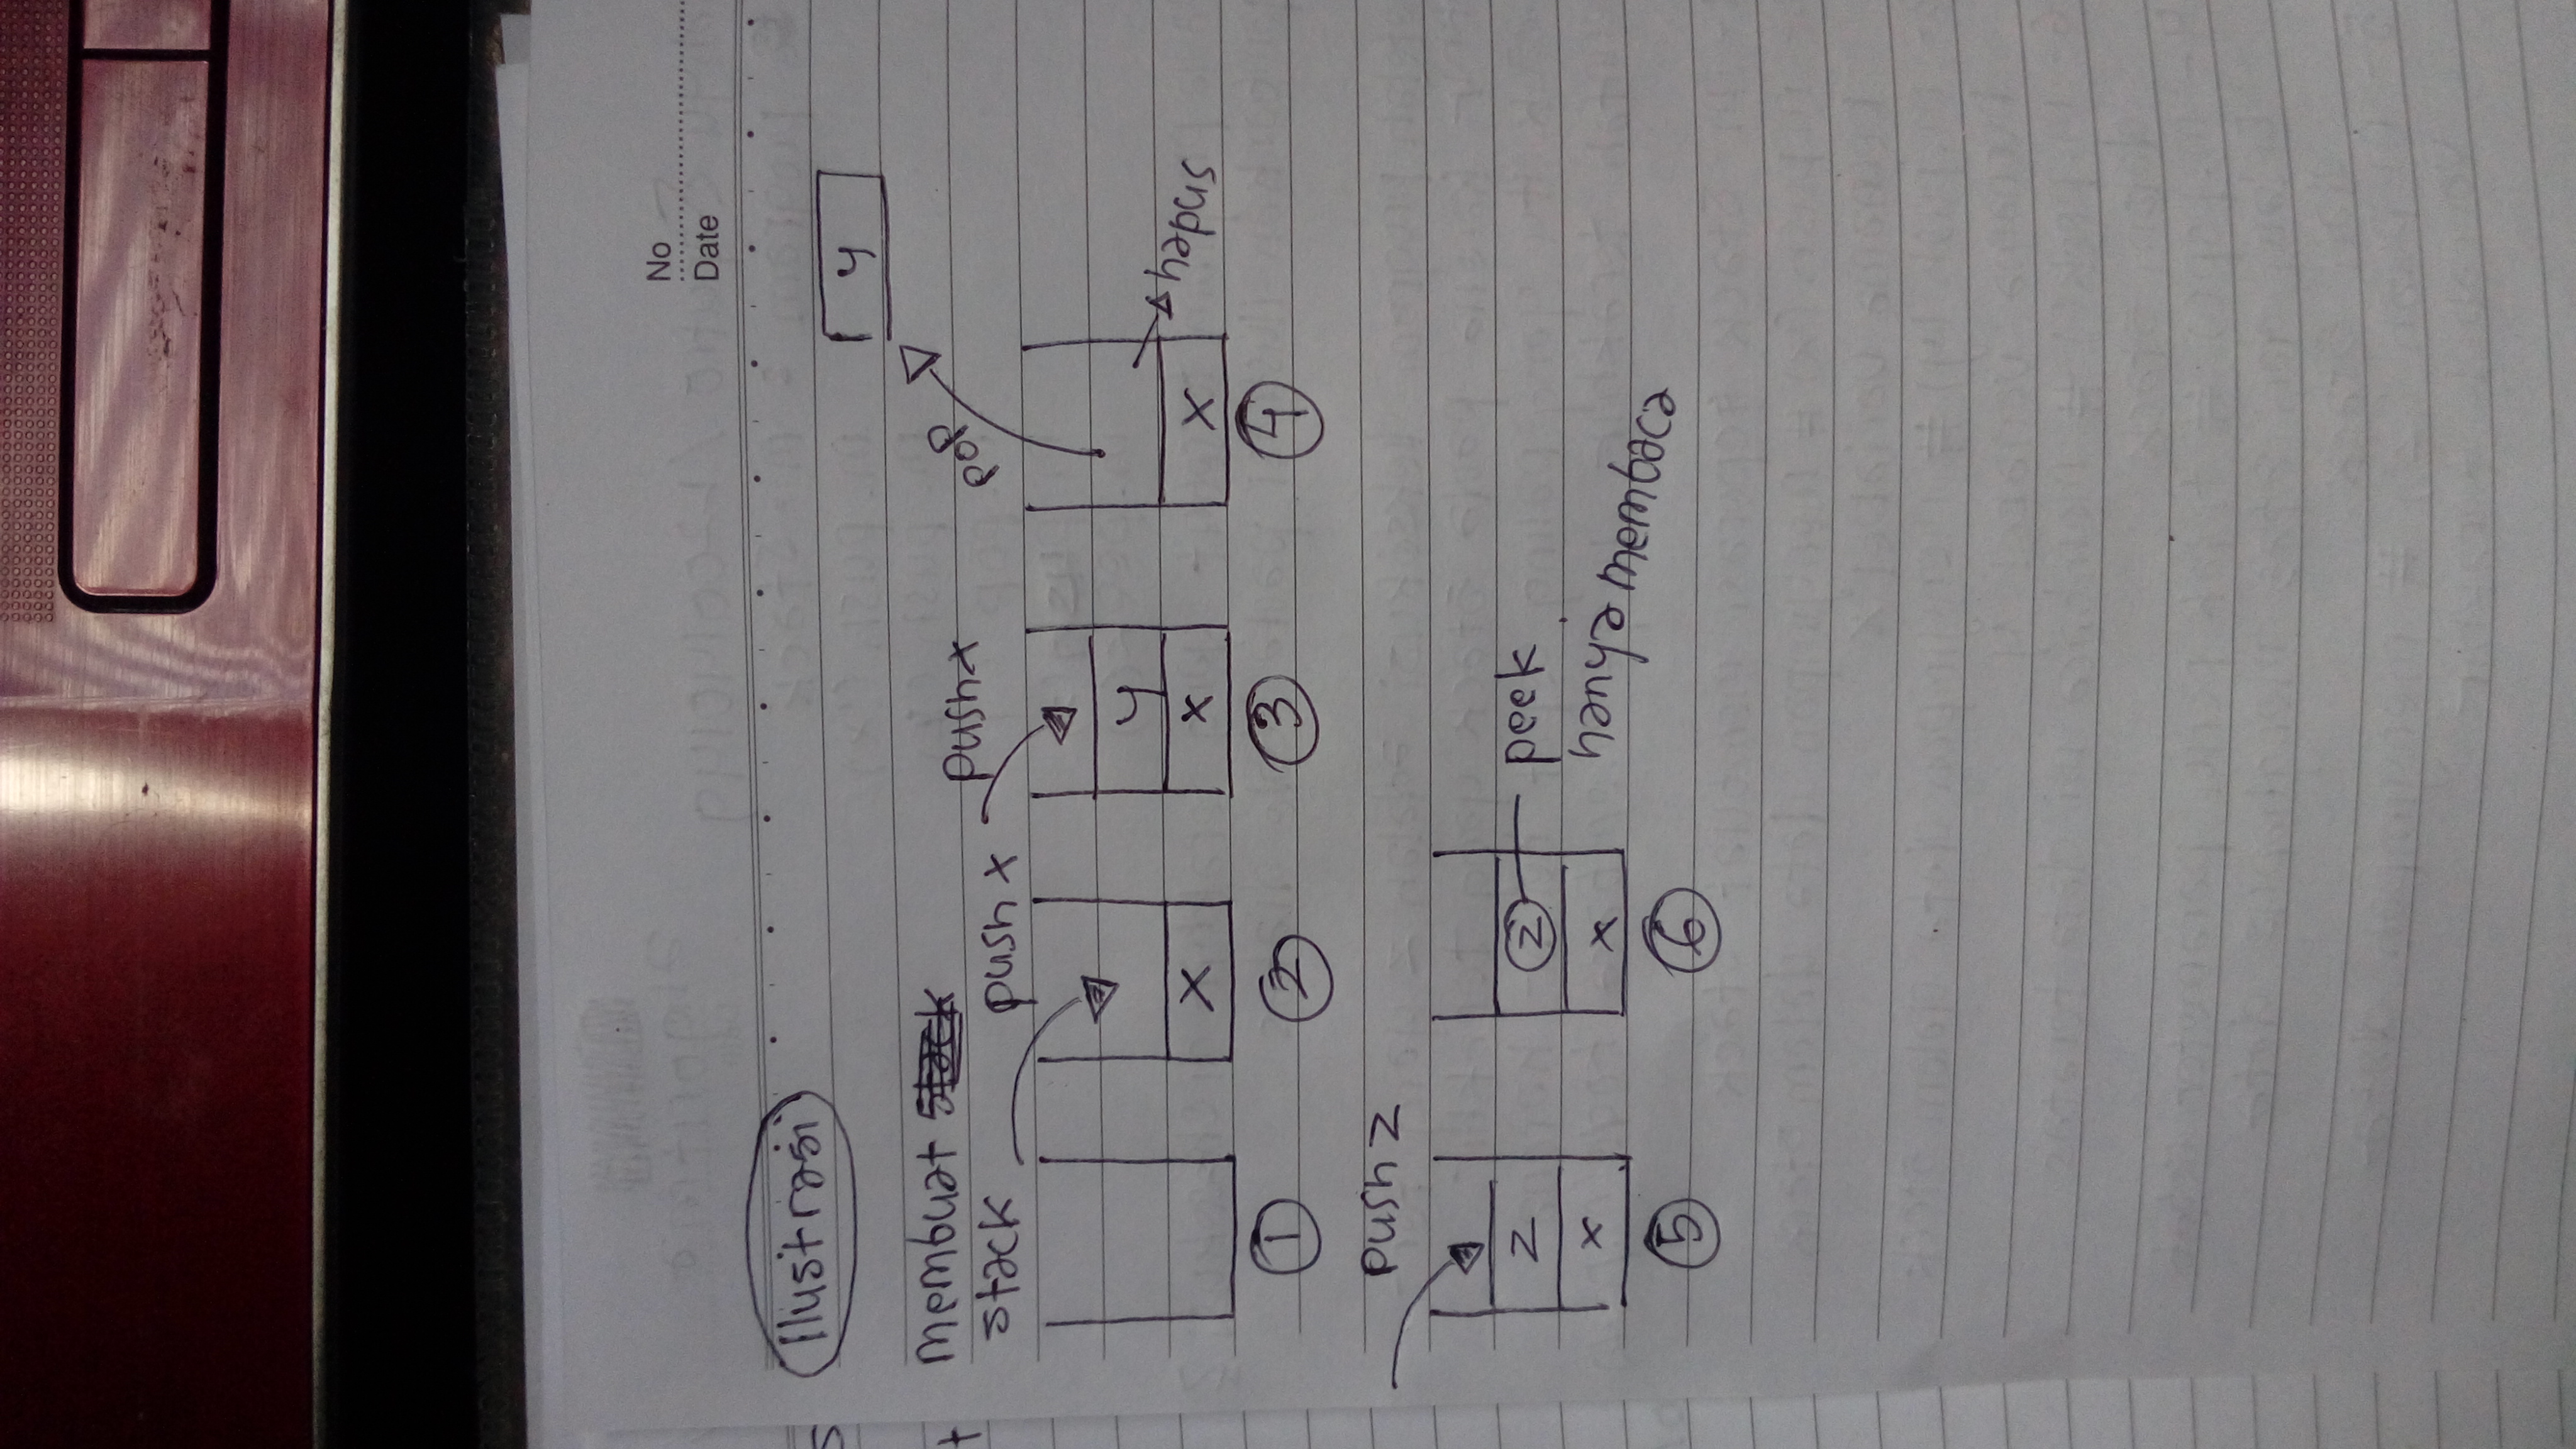 No
Date
Ilustrasi
y
membuat
stack
push x
push x
pop
y
x
x
x
hapus
1
2
3
4
push z
z
z
peek
x
x
hanya membaca
5
6